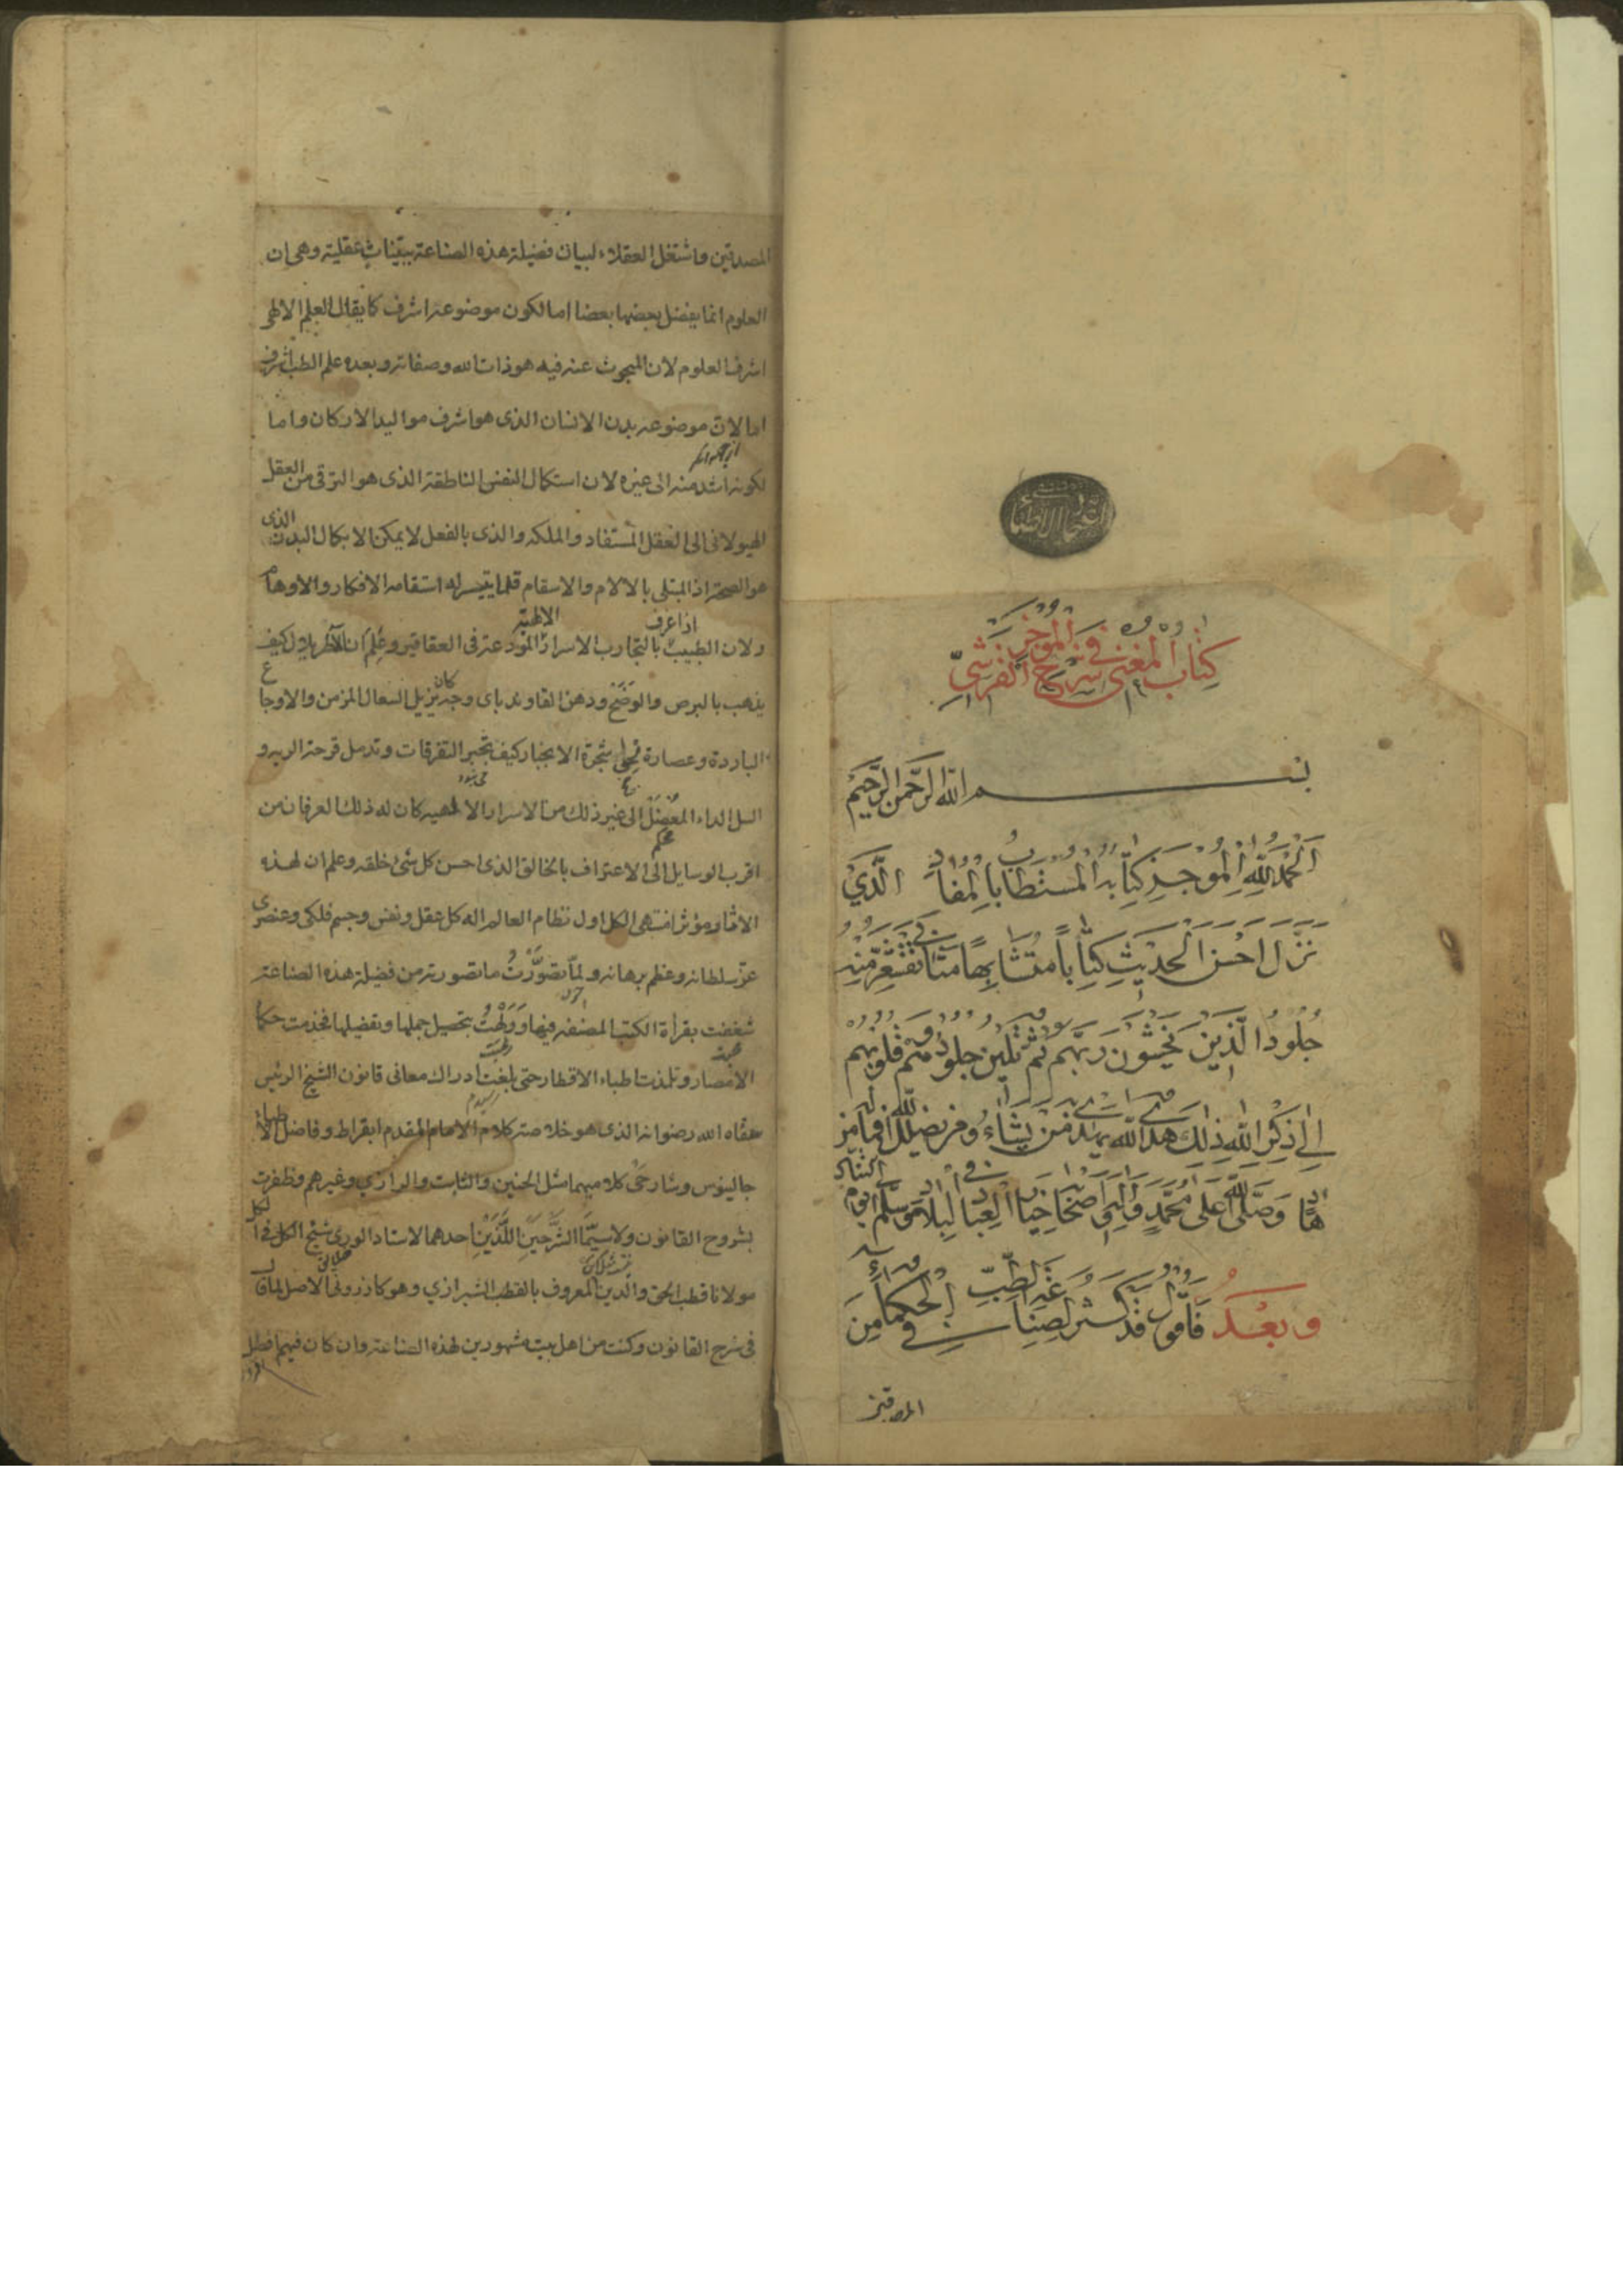 كتاب المغنى فى شرح الموجز
القرشى
بسم الله الرحمن الرحيم
الحمد لله الموجد كتابه المستطاب المفاد الذي
نزل احسن الحديث كتابا متشابها مثانى تقشعر منه
جلود الذين يخشون ربهم ثم تلين جلودهم وقلوبهم
الى ذكر الله ذلك هدى الله يهدى به من يشاء ومن يضلل الله فما له من
هاد وصلى الله على محمد واله واصحابه خيار العباد فى البلاد وسلم الى يوم التناد
وبعد فاقول قد كثر فى صناعة الطب من الحكماء
المصدقين واشتغل العقلاء لبيان فضيلة هذه الصناعة ببينات عقلية وهى ان
العلوم انما يفضل بعضها بعضا اما لكون موضوعه اشرف كما يقال العلم الالهى
اشرف العلوم لان المبحوث عنه فيه هو ذات الله وصفاته وبعده علم الطب اشرف
اما لان موضوعه بدن الانسان الذى هو اشرف مواليد الاركان واما
لكونه اشد منه الى غيره لان استكمال النفس الناطقة الذى هو الترقى من العقل
الهيولانى الى العقل المستفاد والملكه والذى بالفعل لا يمكن الا بكمال البدن الذى
هو الصحة اذ المبتلى بالالام والاسقام قلما يتيسر له استقامه الافكار والاوهام
ولان الطبيب اذا عرف بالتجارب الاسرار الالهية المودعة فى العقاقير وعلم ان كيف
يذهب بالبرص والوضح ودهن القاوند باى وجه كان يزيل السعال المزمن والاوجاع
الباردة وعصارة شجرة الانجبار كيف تجبر التفرقات وتدمل قرحة الريه و
السل الداء المعضل الى غير ذلك من الاسرار الالهيه كان له ذلك العرفان من
اقرب الوسايل الى الاعتراف بالخالق الذى احسن كل شئ خلقه وعلم ان لهذه
الاثار مؤثرا منتهى الكل اول نظام العالم اله كل عقل ونفس وجسم فلكى وعنصرى
عز سلطانه وعظم برهانه ولما تصورت ما تصورته من فضيلة هذه الصناعة
شغفت بقرأة الكتب المصنفه فيها وولهت بتحصيل جملها وتفضيلها فخدمت حكما
الامصار وتلمذت اطباء الاقطار حتى بلغت ادراك معانى قانون الشيخ الرئيس
سقاه الله رضوانه الذى هو خلاصة كلام الامام المقدم ابقراط وفاضل الاطباء
جالينوس وشارحى كلاميهما مثل الحنين والثابت والرازي وغيرهم وظفرت
بشروح القانون ولا سيما الشرحين اللذين احدهما لاستاد الورى شيخ الكل فى الكل
مولانا قطب الحق والدين المعروف بالقطب الشيرازي وهو كازرونى الاصل
فى شرح القانون وكنت من اهل بيت مشهورين لهذه الصناعة وان كان فيهم